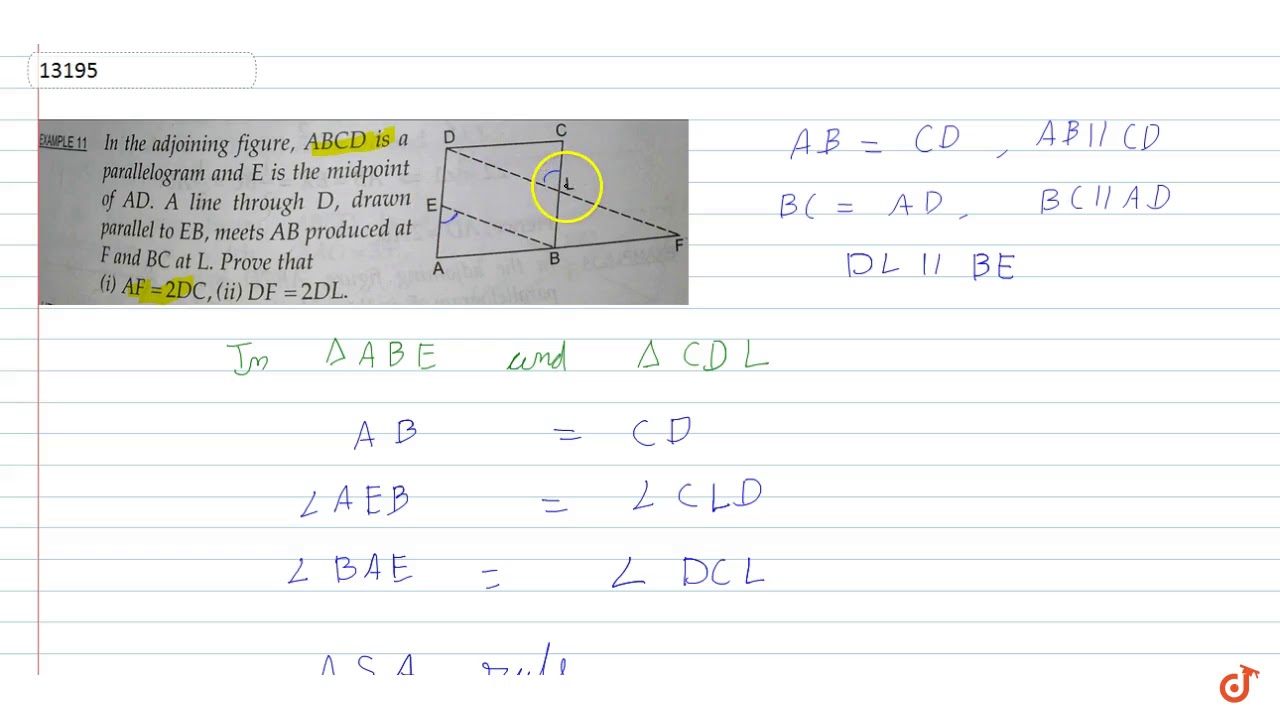 13195
EXAMPLE 11 In the adjoining figure, ABCD is a
parallelogram and E is the midpoint
of AD. A line through D, drawn
parallel to EB, meets AB produced at
F and BC at L. Prove that
(i) AF = 2DC, (ii) DF = 2DL.
D
C
L
E
F
A
B
AB = CD , AB || CD
BC = AD, BC || AD
DL || BE
In Δ ABE and Δ CDL
AB = CD
∠ AEB = ∠ CLD
∠ BAE = ∠ DCL
ASA rule